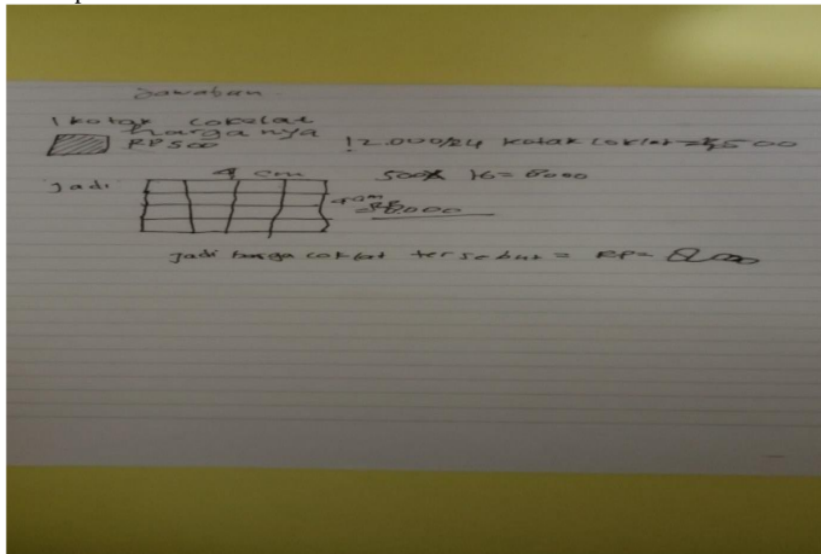 Jawaban
1 kotak cokelat
harganya
RP 500
12.000/24 kotak coklat = 500
Jadi
4 cm
500 X 16 = 8000
4 cm
= 8.000
Jadi harga coklat tersebut = RP = 8.000